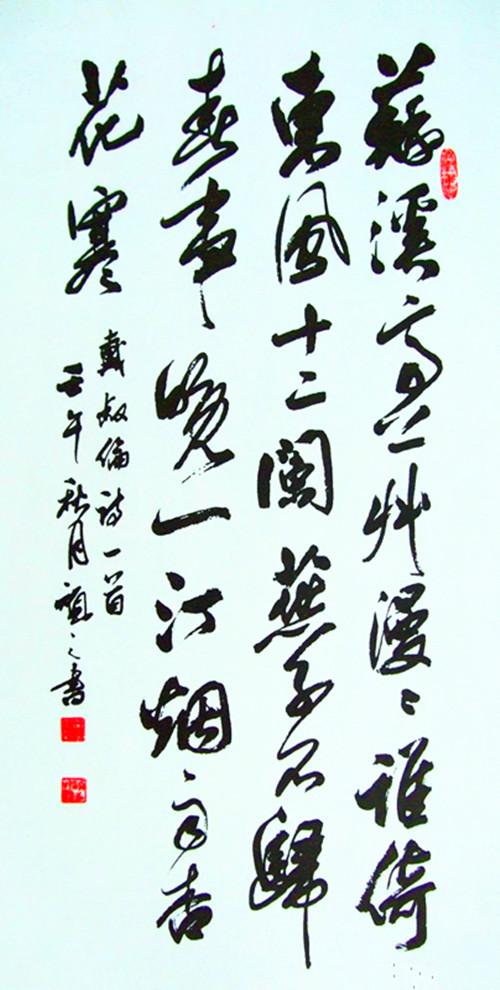 蘇溪亭上艸漫〻誰倚
東風十二闌燕子不歸
春事晚一汀烟雨杏
花寒
戴叔倫詩一首
壬午秋月之書